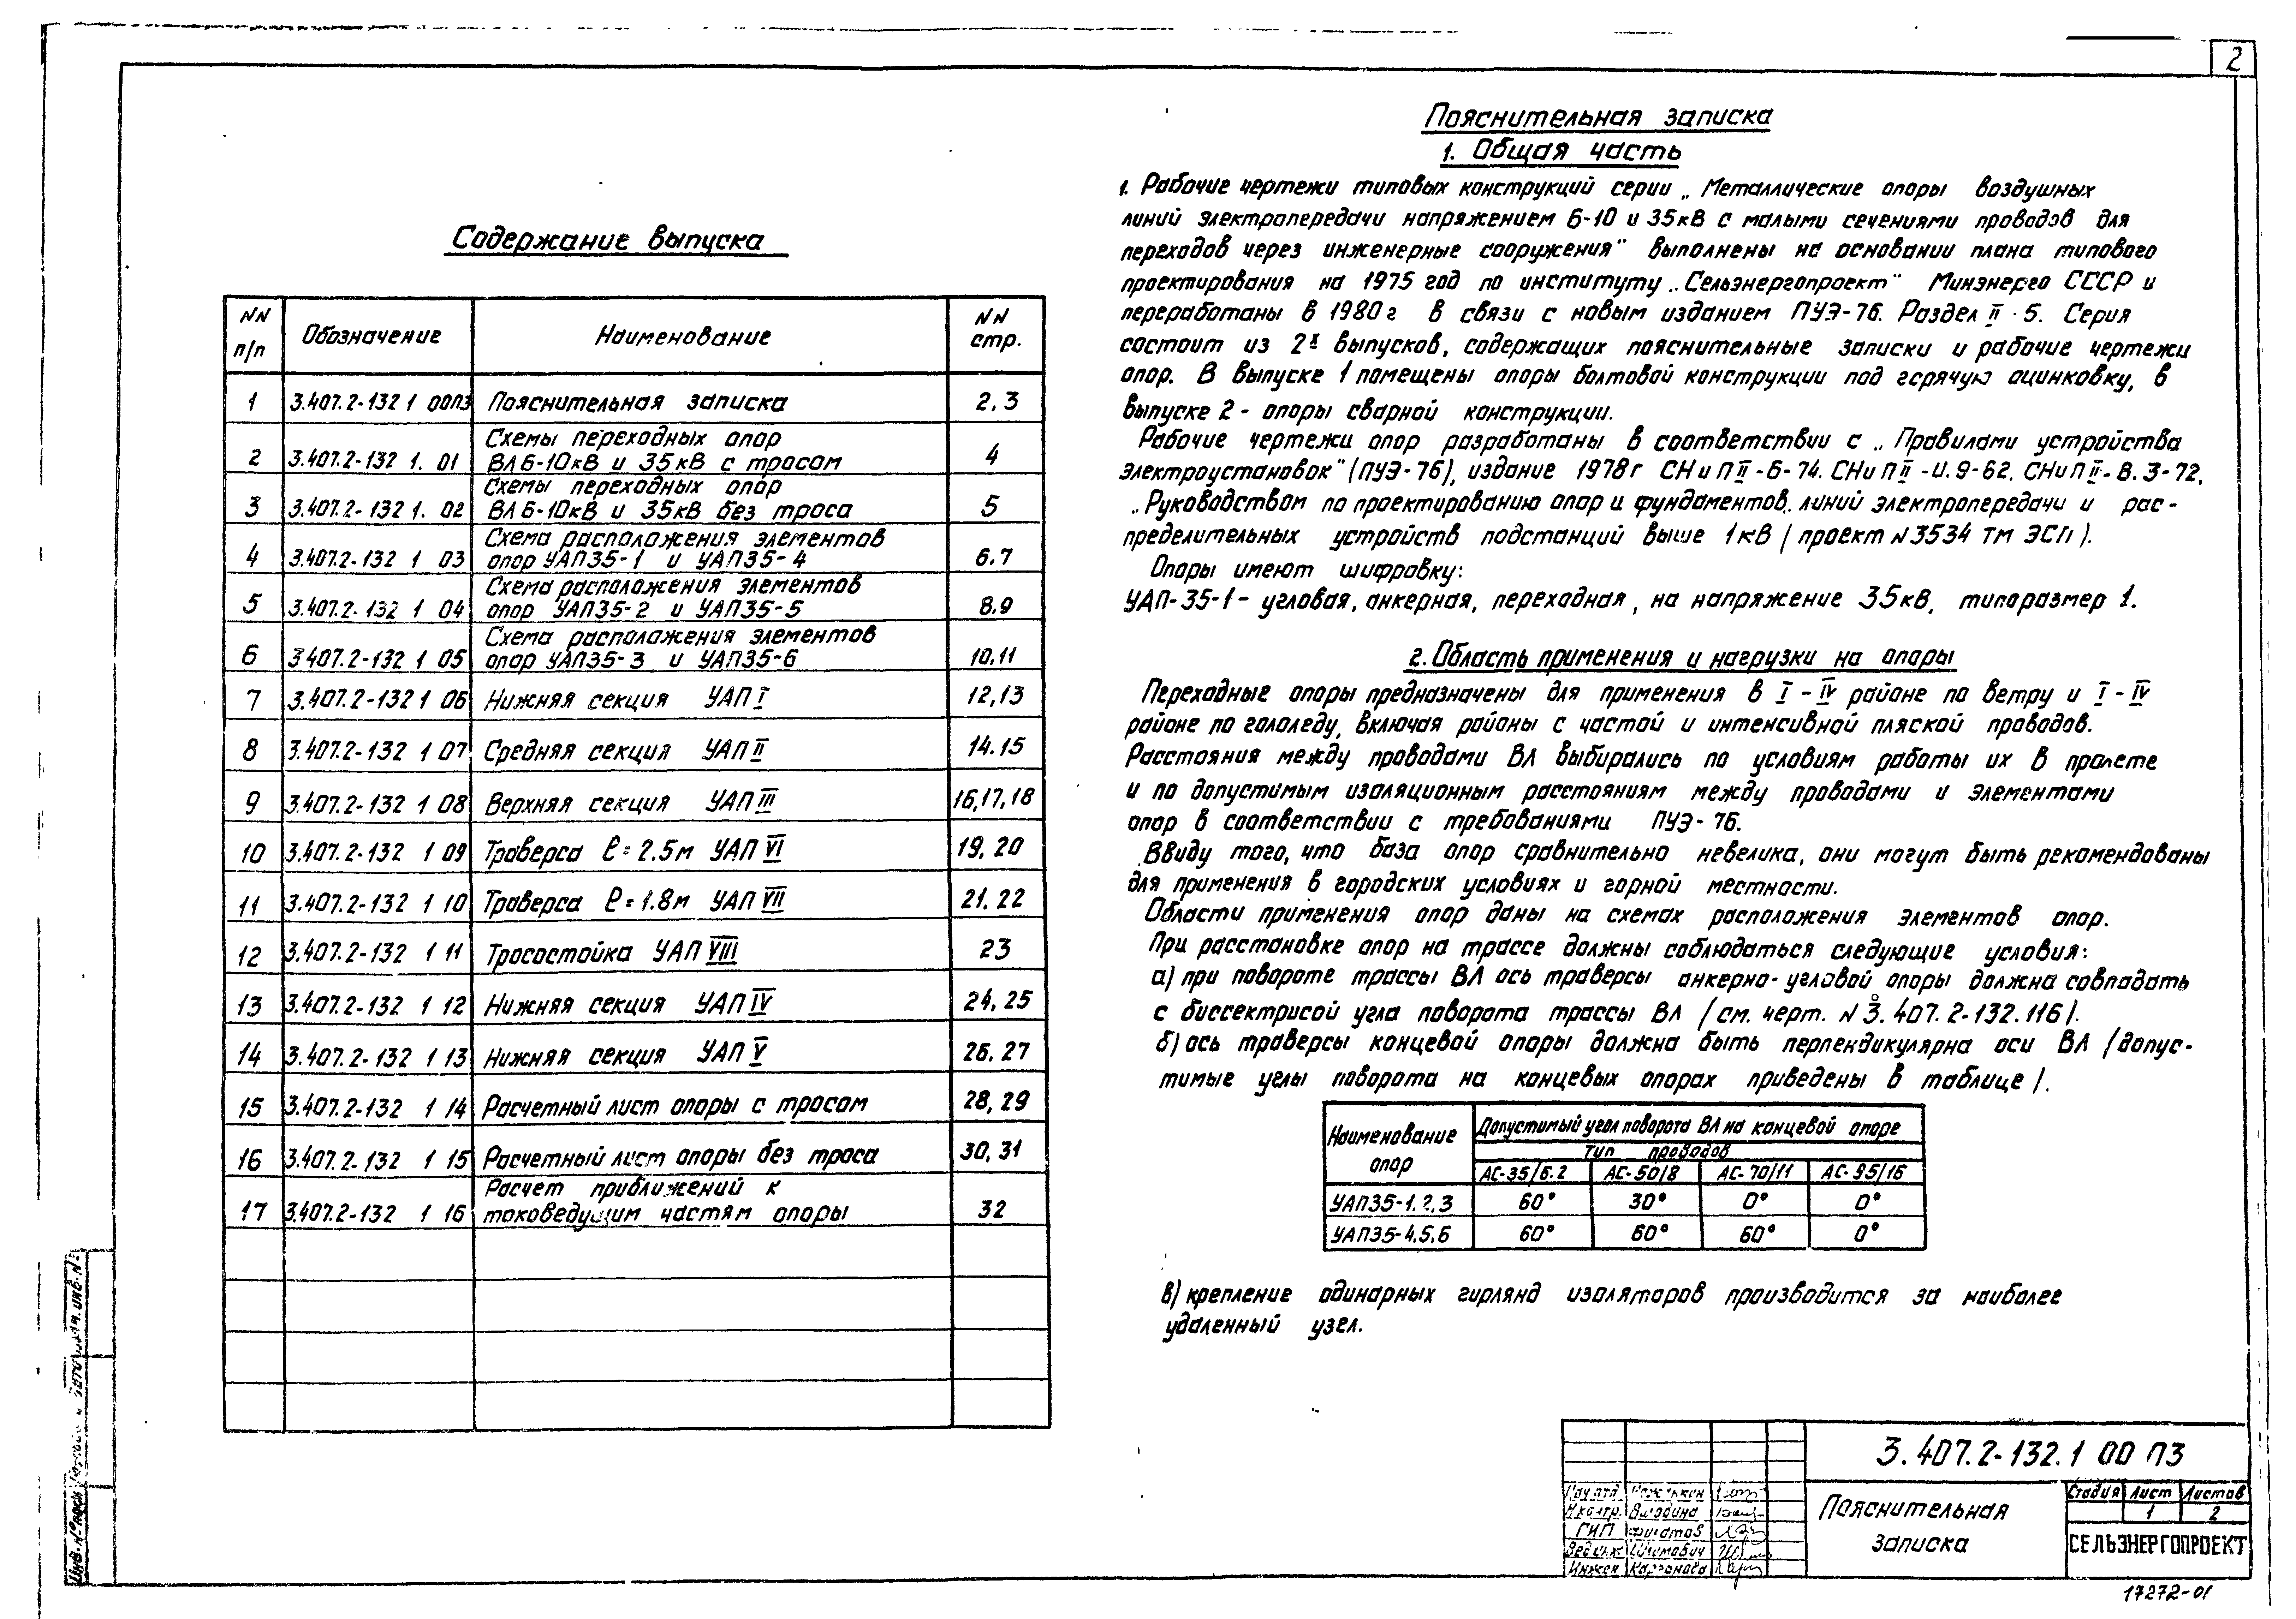 2
Содержание выпуска
NN п/п Обозначение Наименование NN стр.
1 3.407.2-132 1 00ПЗ Пояснительная записка 2,3
2 3.407.2-132 1. 01 Схемы переходных опор ВЛ 6-10кВ и 35кВ с тросом 4
3 3.407.2-132 1. 02 Схемы переходных опор ВЛ 6-10кВ и 35кВ без троса 5
4 3.407.2-132 1 03 Схема расположения элементов опор УАП35-1 и УАП35-4 6.7
5 3.407.2-132 1 04 Схема расположения элементов опор УАП35-2 и УАП35-5 8,9
6 3407.2-132 1 05 Схема расположения элементов опор УАП35-3 и УАП35-6 10.11
7 3.407.2-132 1 06 Нижняя секция УАП I 12,13
8 3.407.2-132 1 07 Средняя секция УАП II 14.15
9 3.407.2-132 1 08 Верхняя секция УАП III 16,17,18
10 3.407.2-132 1 09 Траверса ℓ=2.5м УАП VI 19,20
11 3.407.2-132 1 10 Траверса ℓ=1.8м УАП VII 21.22
12 3.407.2-132 1 11 Тросостойка УАП VIII 23
13 3.407.2-132 1 12 Нижняя секция УАП IV 24,25
14 3.407.2-132 1 13 Нижняя секция УАП V 26.27
15 3.407.2-132 1 14 Расчетный лист опоры с тросом 28,29
16 3.407.2-132 1 15 Расчетный лист опоры без троса 30,31
17 3.407.2-132 1 16 Расчет приближений к токоведущим частям опоры 32
Пояснительная записка
1. Общая часть
1. Рабочие чертежи типовых конструкций серии „Металлические опоры воздушных
линий электропередачи напряжением 6-10 и 35кВ с малыми сечениями проводов для
переходов через инженерные сооружения" выполнены на основании плана типового
проектирования на 1975 год по институту „Сельэнергопроект" Минэнерго СССР и
переработаны в 1980г в связи с новым изданием ПУЭ-76. Раздел II-5. Серия
состоит из 2х выпусков, содержащих пояснительные записки и рабочие чертежи
опор. В выпуске 1 помещены опоры болтовой конструкции под горячую оцинковку, в
выпуске 2 - опоры сварной конструкции.
Рабочие чертежи опор разработаны в соответствии с „Правилами устройства
электроустановок" (ПУЭ-76), издание 1978г СНиП II-6-74. СНиП II-И.9-62. СНиП II-В.3-72,
„Руководством по проектированию опор и фундаментов линий электропередачи и рас-
пределительных устройств подстанций выше 1кВ (проект N3534 ТМ ЭСП).
Опоры имеют шифровку:
УАП-35-1 - угловая, анкерная, переходная, на напряжение 35кВ, типоразмер 1.
2. Область применения и нагрузки на опоры
Переходные опоры предназначены для применения в I-IV районе по ветру и I-IV
районе по гололеду, включая районы с частой и интенсивной пляской проводов.
Расстояния между проводами ВЛ выбирались по условиям работы их в пролете
и по допустимым изоляционным расстояниям между проводами и элементами
опор в соответствии с требованиями ПУЭ-76.
Ввиду того, что база опор сравнительно невелика, они могут быть рекомендованы
для применения в городских условиях и горной местности.
Области применения опор даны на схемах расположения элементов опор.
При расстановке опор на трассе должны соблюдаться следующие условия:
а) при повороте трассы ВЛ ось траверсы анкерно-угловой опоры должна совпадать
с биссектрисой угла поворота трассы ВЛ (см. черт. N 3.407.2-132.116).
б) ось траверсы концевой опоры должна быть перпендикулярна оси ВЛ (допус-
тимые углы поворота на концевых опорах приведены в таблице).
Наименование опор Допустимый угол поворота ВЛ на концевой опоре
Тип проводов
АС-35/6.2 АС-50/8 АС-70/11 АС-95/16
УАП35-1.2,3 60° 30° 0° 0°
УАП35-4,5,6 60° 60° 60° 0°
в) крепление одинарных гирлянд изоляторов производится за наиболее
удаленный узел.
3.407.2-132.1 00 ПЗ
Нач.отд.
Н.контр.
ГИП
Вед.инж
Инжен
Пояснительная записка
Стадия Лист Листов
1 2
СЕЛЬЭНЕРГОПРОЕКТ
17272-01
Инв.№подл.